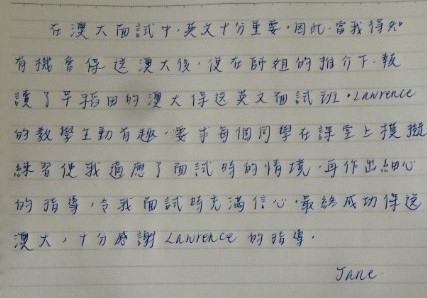 在澳大面試中，英文十分重要，因此，當我得知
有機會保送澳大後，便在師姐的推介下，報
讀了早稻田的澳大保送英文面試班。Lawrence
的教學生動有趣，要求每個同學在課堂上模擬
練習使我適應了面試時的情境，再作出細心
的指導，令我面試時充滿信心，最終成功保送
澳大，十分感謝Lawrence的指導。
Jane